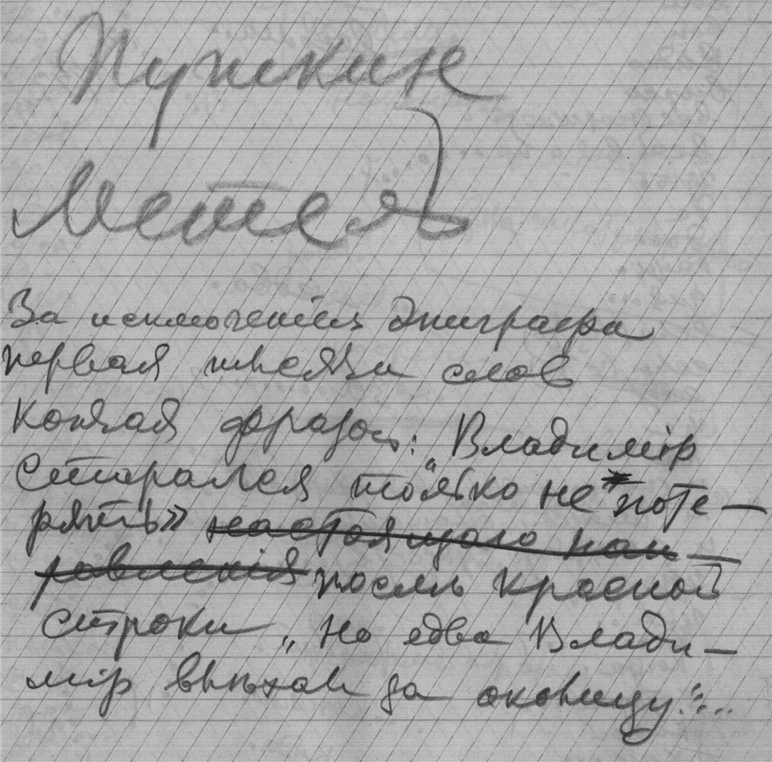 Пушкин
Метель
За исключеніем эпиграфа
первая тысяча слов
кончая фразою: "Владимір
старался только не поте-
рять» настоящаго нап-
равленія послѣ красной
строки „Но едва Влади-
мір выѣхал за околицу"...